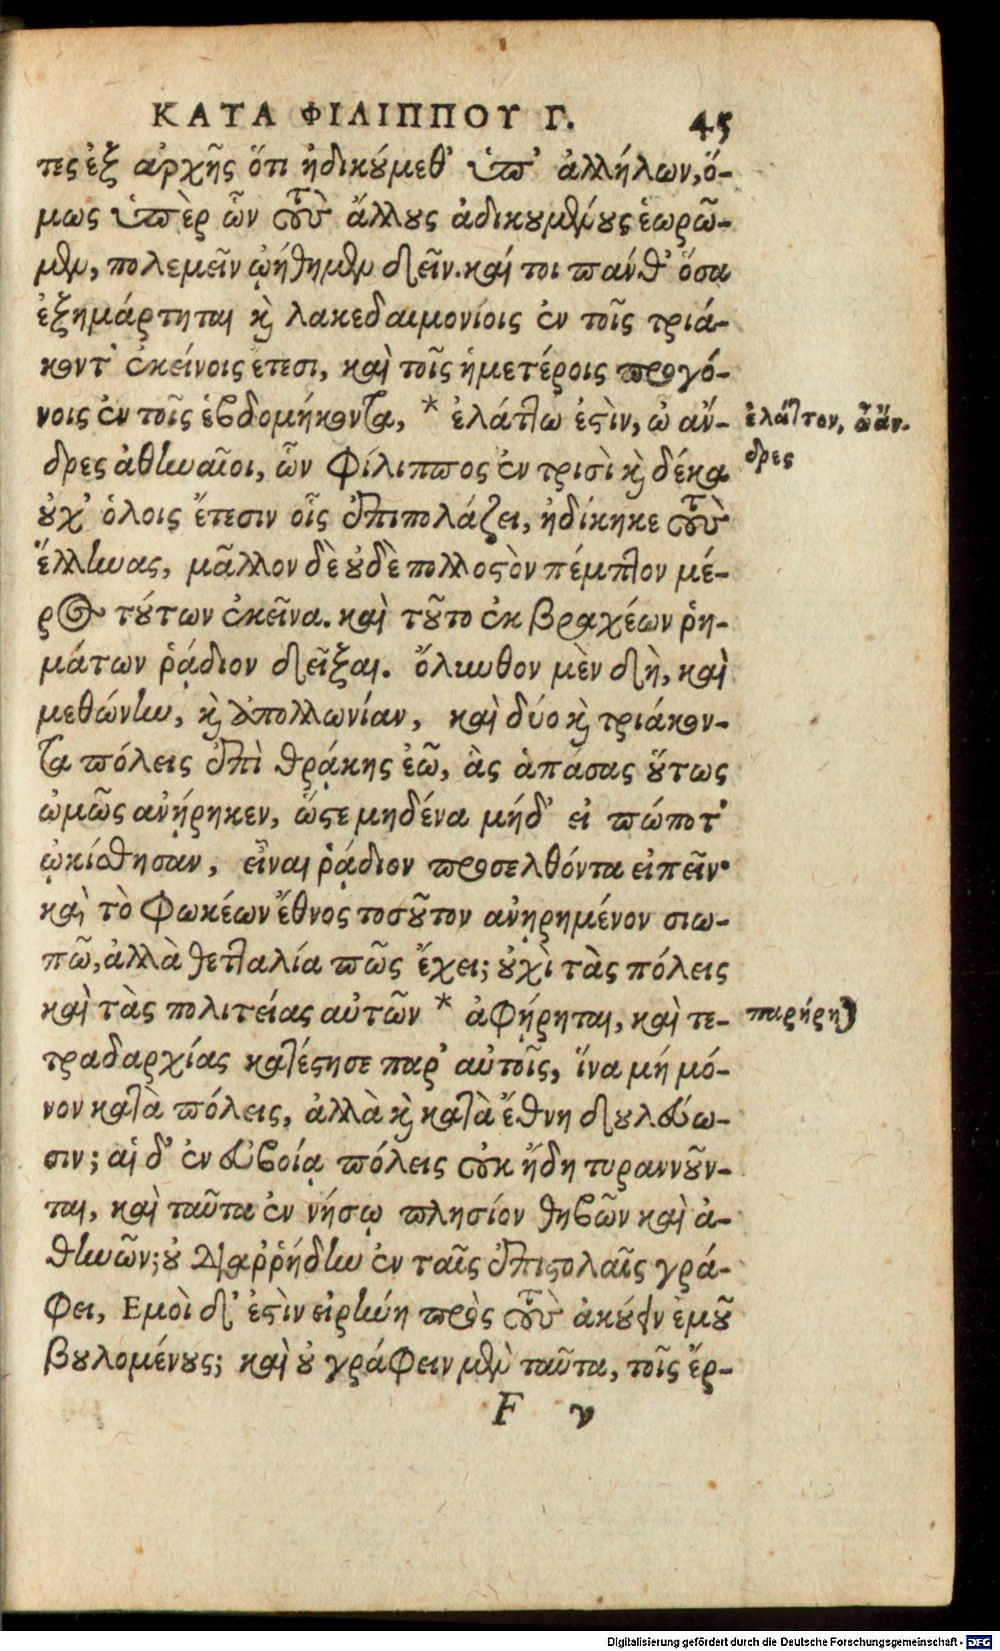 ΚΑΤΑ ΦΙΛΙΠΠΟΥ Γ. 45
τες ἐξ ἀρχῆς ὅτι ἠδικούμεθ’ ὑπ’ ἀλλήλων, ὅ-
μως ὑπὲρ ὧν τοὺς ἄλλους ἀδικουμένους ἑωρῶ-
μεν, πολεμεῖν ᾠήθημεν δεῖν. καί τοι πάνθ’ ὅσα
ἐξημάρτηται καὶ λακεδαιμονίοις ἐν τοῖς τριά-
κοντ’ ἐκείνοις ἔτεσι, καὶ τοῖς ἡμετέροις προγό-
νοις ἐν τοῖς ἑβδομήκοντα, * ἐλάττω ἐστὶν, ὦ ἄν-
ἐλάττον, ὦ ἄν-
δρες ἀθηναῖοι, ὧν Φίλιππος ἐν τρισὶ καὶ δέκα
δρες
οὐχ’ ὅλοις ἔτεσιν οἷς ἐπιπολάζει, ἠδίκηκε τοὺς
ἕλληνας, μᾶλλον δὲ οὐδὲ πολλοστὸν πέμπτον μέ-
ρος τούτων ἐκεῖνα. καὶ τοῦτο ἐκ βραχέων ῥη-
μάτων ῥᾴδιον δεῖξαι. ὄλυνθον μὲν δὴ, καὶ
μεθώνην, καὶ ἀπολλωνίαν, καὶ δύο καὶ τριάκον-
τα πόλεις ἐπὶ θρᾴκης ἐῶ, ἃς ἁπάσας οὕτως
ὠμῶς ἀνῄρηκεν, ὥστε μηδένα μήδ’ εἰ πώποτ’
ᾠκίσθησαν, εἶναι ῥᾴδιον προσελθόντα εἰπεῖν·
καὶ τὸ Φωκέων ἔθνος τοσοῦτον ἀνῃρημένον σιω-
πῶ, ἀλλὰ θετταλία πῶς ἔχει; οὐχὶ τὰς πόλεις
καὶ τὰς πολιτείας αὐτῶν * ἀφῄρηται, καὶ τε-
παρήρηται
τραδαρχίας κατέστησε παρ’ αὐτοῖς, ἵνα μή μό-
νον κατὰ πόλεις, ἀλλὰ καὶ κατὰ ἔθνη δουλεύω-
σιν; αἱ δ’ ἐν εὐβοίᾳ πόλεις οὐκ ἤδη τυραννοῦν-
ται, καὶ ταῦτα ἐν νήσῳ πλησίον θηβῶν καὶ ἀ-
θηνῶν; οὐ διαῤῥήδην ἐν ταῖς ἐπιστολαῖς γρά-
φει, Εμοὶ δ’ ἐστὶν εἰρήνη πρὸς τοὺς ἀκούειν ἐμοῦ
βουλομένους; καὶ οὐ γράφειν μὲν ταῦτα, τοῖς ἔρ-
F v
Digitalisierung gefördert durch die Deutsche Forschungsgemeinschaft - DFG